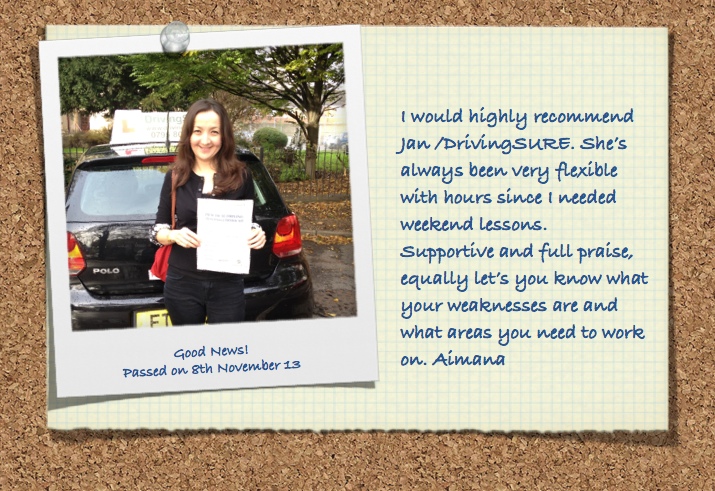 Driving
POLO
Good News!
Passed on 8th November 13
I would highly recommend
Jan /DrivingSURE. She's
always been very flexible
with hours since I needed
weekend lessons.
Supportive and full praise,
equally let's you know what
your weaknesses are and
what areas you need to work
on. Aimana